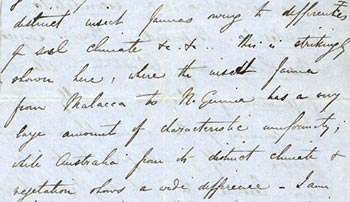 district insect faunas owing to differences
of soil climate &c. &c.. This is strikingly
shown here, where the insect fauna
from Malacca to N. Guinea has a very
large amount of characteristic uniformity;
while Australia from its distinct climate &
vegetation shows a wide difference - I am